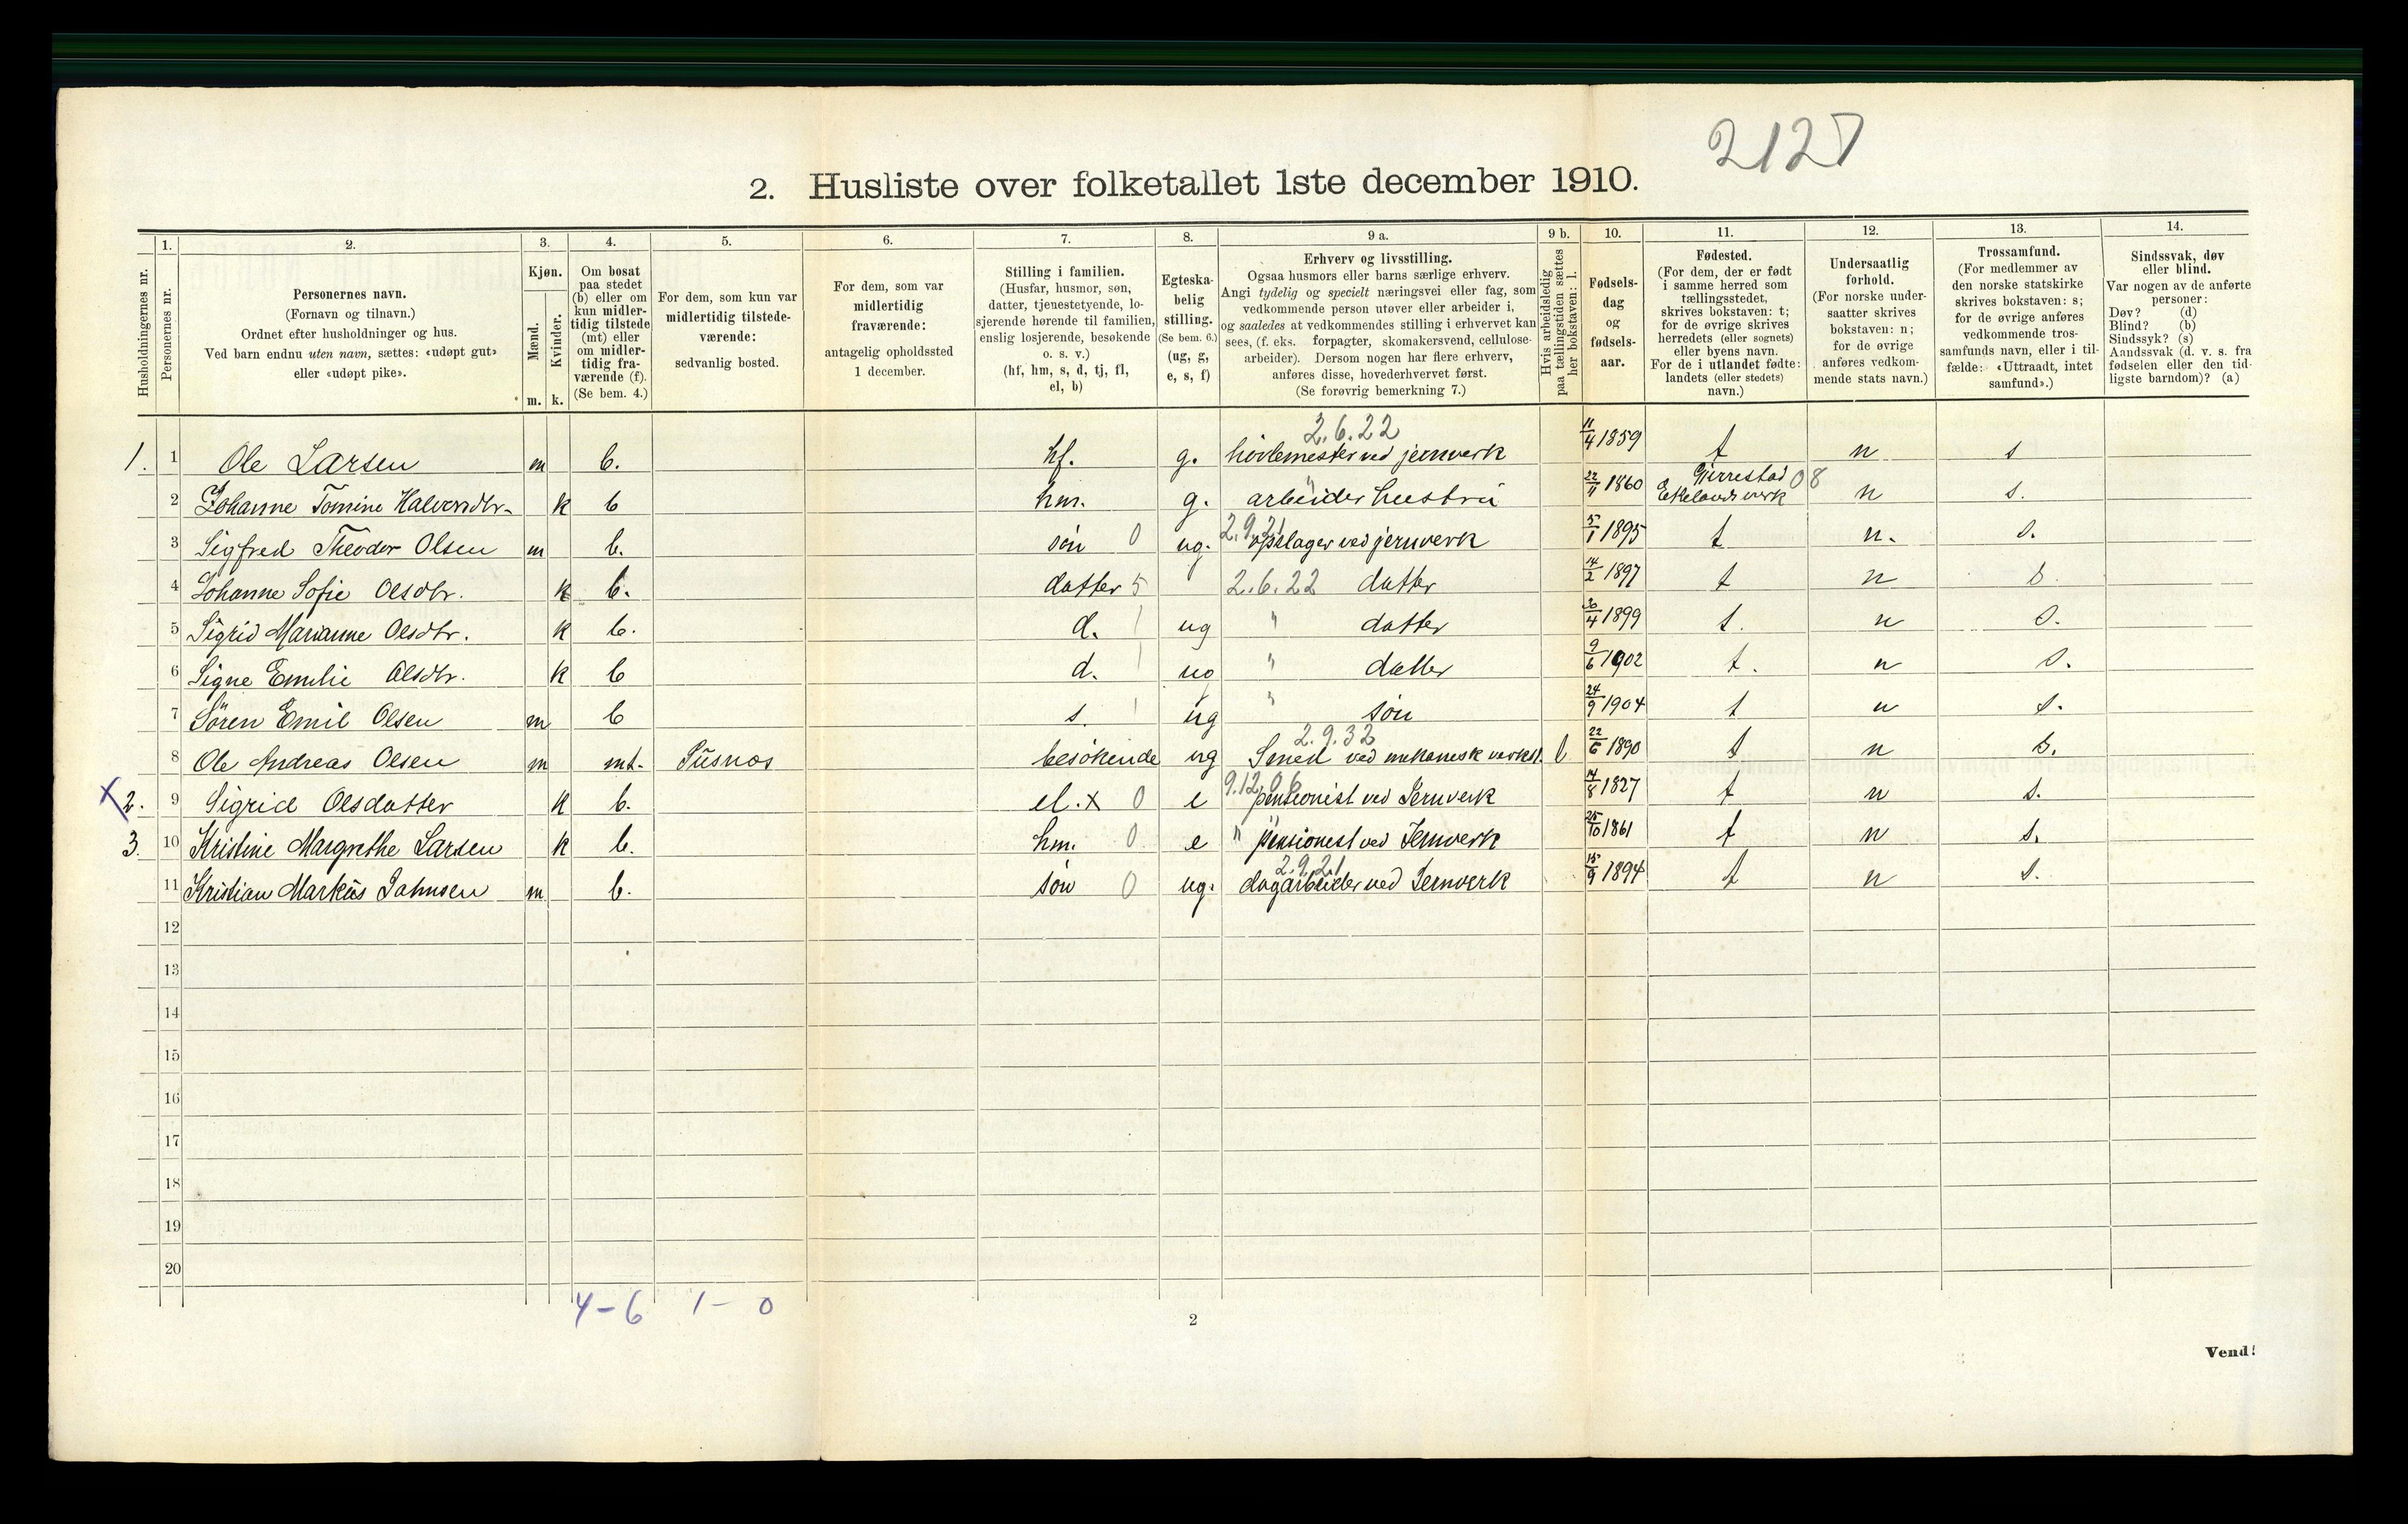 2127
2. Husliste over folketallet 1ste december 1910.
1. 2. 3. 4. 5. 6. 7. 8. 9 a. 9 b. 10. 11. 12. 13. 14.
Husholdningernes nr.
Personernes nr.
Personernes navn.
(Fornavn og tilnavn.)
Ordnet efter husholdninger og hus.
Ved barn endnu uten navn, sættes: «udøpt gut»
eller «udøpt pike».
Kjøn.
Mænd.
Kvinder.
m. k.
Om bosat
paa stedet
(b) eller om
kun midler-
tidig tilstede
(mt) eller
om midler-
tidig fra-
værende (f).
(Se bem. 4.)
For dem, som kun var
midlertidig tilstede-
værende:
sedvanlig bosted.
For dem, som var
midlertidig
fraværende:
antagelig opholdssted
1 december.
Stilling i familien.
(Husfar, husmor, søn,
datter, tjenestetyende, lo-
sjerende hørende til familien,
enslig losjerende, besøkende
o. s. v.)
(hf, hm, s, d, tj, fl,
el, b)
Egteska-
belig
stilling.
(Se bem. 6.)
(ug, g,
e, s, f)
Erhverv og livsstilling.
Ogsaa husmors eller barns særlige erhverv.
Angi tydelig og specielt næringsvei eller fag, som
vedkommende person utøver eller arbeider i,
og saaledes at vedkommendes stilling i erhvervet kan
sees, (f. eks. forpagter, skomakersvend, cellulose-
arbeider). Dersom nogen har flere erhverv,
anføres disse, hovederhvervet først.
(Se forøvrig bemerkning 7.)
Hvis arbeidsledig
paa tællingstiden sættes
her bokstaven: l.
Fødsels-
dag
og
fødsels-
aar.
Fødested.
(For dem, der er født
i samme herred som
tællingsstedet,
skrives bokstaven: t;
for de øvrige skrives
herredets (eller sognets)
eller byens navn.
For de i utlandet fødte:
landets (eller stedets)
navn.)
Undersaatlig
forhold.
(For norske under-
saatter skrives
bokstaven: n;
for de øvrige
anføres vedkom-
mende stats navn.)
Trossamfund.
(For medlemmer av
den norske statskirke
skrives bokstaven: s;
for de øvrige anføres
vedkommende tros-
samfunds navn, eller i til-
fælde: «Uttraadt, intet
samfund».)
Sindssvak, døv
eller blind.
Var nogen av de anførte
personer:
Døv? (d)
Blind? (b)
Sindssyk? (s)
Aandssvak (d. v. s. fra
fødselen eller den tid-
ligste barndom)? (a)
2.6.22
1. 1 Ole Larsen m b. hf. g. hövlemester ved jernverk 11/4 1859 t n s
2 Johanne Tomine Halvorsdtr. k b hm. g. arbeider hustru 22/11 1860 Gjerrestad Eekelands verk 08 n s.
2.9.21
3 Sigfred Theodor Olsen m b. sön 0 ug. opslager ved jernverk 5/1 1895 t n. s.
4 Johanne Sofie Olsdtr. k b. datter 5 2.6.22 datter 14/2 1897 t n s.
5 Sigrid Marianne Olsdtr. k b. d. 1 ug " datter 30/4 1899 t. n s.
6 Signe Emilie Olsdtr. k b d. 1 ug " datter 9/6 1902 t. n s.
7 Sören Emil Olsen m b s. 1 ug " sön 24/9 1904 t n s.
2.9.32
8 Ole Andreas Olsen m mt. Tusnos besökende ug Smed ved mekanesk verkst. l 22/6 1890 t n s.
9.12.06
x 2. 9 Sigrid Olsdatter k b. el. x 0 e pensionist ved Jernverk 14/8 1827 t n s.
3. 10 Kristine Margrethe Larsen k b. hm. 0 e " pensionest ved Jernverk 25/10 1861 t n s.
2.9.21
11 Kristian Markus Johnsen m b. sön 0 ug. dagarbeider ved Jernverk 15/9 1894 t n s.
12
13
14
15
16
17
18
19
20
4 - 6 1 - 0
2
Vend!